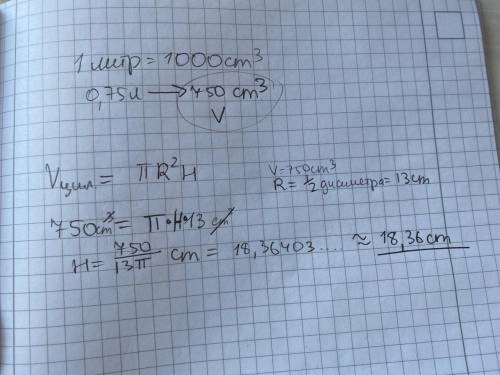 1 литр = 1000 cm³
0,75л → 750 cm³
V
Vцил. = πR²H
V=750cm³
R = ½ диаметра = 13cm
750cm³ = π·H·13 cm²
H = 750/13π cm = 18,36403.... ≈ 18,36cm